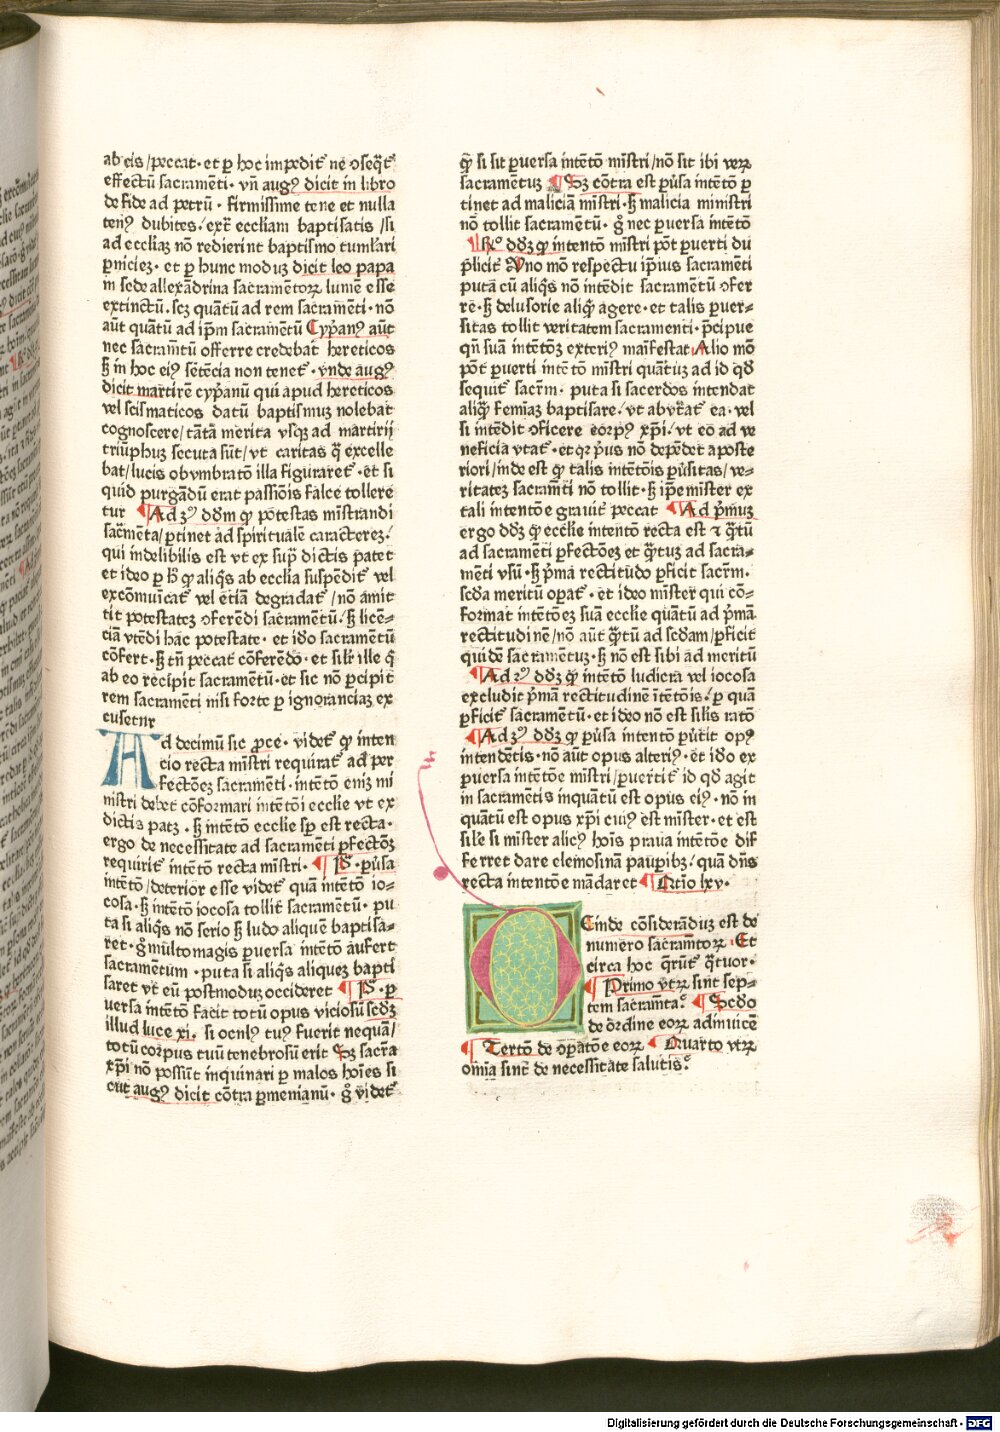 ab eis / peccat · et ꝑ hoc impedit᷑ ne ↄseqt᷑
effectū sacramēti · vn̄ augꝰ dicit in libro
de fide ad petrū · firmissime tene et nulla
tenꝰ dubites / extᷓ eccliam baptisatis / si
ad eccliaꝫ nō redierint baptismo tumlari
ꝑnicieꝫ · et ꝑ hunc moduꝫ dicit leo papa
in sede allexādrina sacramētoꝝ lumē esse
extinctū · scꝫ quātū ad rem sacramēti · nō
aūt quātū ad ip̄m sacramētū Cyp̄anꝰ aūt
nec sacramtū offerre credebat hereticos
ꝫ in hoc eiꝰ sētēcia non tenet᷑ · vnde augꝰ
dicit martirē cyp̄anū qui apud hereticos
vel scismaticos datū baptismuꝫ nolebat
cognoscere / tātā merita vsqꝫ ad martirij
triūphuꝫ secuta sūt / vt caritas qᷓ excelle
bat / lucis obvmbratō illa figuraret᷑ · et si
quid purgādū erat passiōis falce tollere
tur ¶ Ad ꝫꝰ dd̄m ꝙ potestas mīstrandi
sacr̄meta / ꝑtinet ad spiritualē caractereꝫ /
qui indelibilis est vt ex sup̄ dictis patet
et ideo ꝑ h̄ ꝙ aliqͥs ab ecclia suspēdit᷑ vel
excōmuīcat᷑ vel etiā degradat᷑ / nō amit
tit potestateꝫ ↄferēdi sacramētū / ꝫ licē=
ciā vtēdi hac potestate · et ido sacramētū
cōfert · ꝫ tn̄ peccat cōferēdo · et silr̄ ille qͥ
ab eo recipit sacramētū · et sic nō ꝑcipit
rem sacramēti nisi forte ꝑ ignoranciaꝫ ex
cusetur
Ad decimū sic ꝓce · videt᷑ ꝙ inten
cio recta mīstri requirat᷑ ad per
fectōeꝫ sacramēti · intētō eniꝫ mi
nistri debet cōformari intētōi ecclie vt ex
dictis patꝫ · ꝫ intētō ecclie sp̄ est recta ·
ergo de necessitate ad sacramēti ꝑfectōꝫ
requirit᷑ intētō recta mīstri · ¶ Pͣ · ꝑūsa
intētō / deterior esse videt᷑ quā intētō io=
cosa · ꝫ intētō iocosa tollit sacramētū · pu
ta si aliqͥs nō serio ꝫ ludo aliquē baptisa=
ret · gͦ multomagis ꝑuersa intētō aufert
sacramētum · puta si aliqͥs aliqueꝫ bapti
saret vt eū postmoduꝫ occideret ¶ Pͣ · ꝑ
uersa intētō facit totū opus viciosū scdꝫ
illud luce xi · si oculꝰ tuꝰ fuerit nequā /
totū corpus tuū tenebrosū erit Sꝫ sacra
xp̄i nō possūt inquinari ꝑ malos hoīes si
cut augꝰ dicit cōtra ꝑmenianū · gͦ videt᷑
ꝙ si sit ꝑuersa intētō mīstri / nō sit ibi veꝝ
sacramētuꝫ ¶ Sꝫ cōtra est ꝑūsa intētō ꝑ
tinet ad maliciā mīstri · ꝫ malicia ministri
nō tollit sacramētū · gͦ nec ꝑuersa intētō
¶ Rͦ dd̄ꝫ ꝙ intentō mīstri pōt ꝑuerti du
pliciter Vno mō respectu ip̄ius sacramēti
puta cū aliqͥs nō intēdit sacramētū ↄfer
re · ꝫ delusorie aliqͥ agere · et talis ꝑuer=
sitas tollit veritatem sacramenti · p̄cipue
qn̄ suā intētōꝫ exteriꝰ maīfestat Alio mō
pōt ꝑuerti intētō mīstri quātuꝫ ad id qd̄
sequit᷑ sacrm̄ · puta si sacerdos intendat
aliqͣ femīaꝫ baptisare / vt abutat᷑ ea · vel
si intēdit ↄficere corpꝰ xp̄i / vt eo ad ve
neficia vtat᷑ · et qꝛ p̄us nō depēdet aposte
riori / inde est ꝙ talis intētōis ꝑūsitas / ve=
ritateꝫ sacramti nō tollit · ꝫ ip̄e mister ex
tali intentōe grauit᷑ peccat ¶ Ad p̄muꝫ
ergo dd̄ꝫ ꝙ ecclie intentō recta est ⁊ qͣtū
ad sacramēti ꝑfectōeꝫ et qͣtuꝫ ad sacra=
mēti vsū · ꝫ p̄ma rectitudo ꝑficit sacrm̄ ·
scd̄a meritū oꝑat᷑ · et ideo mīster qui cō=
format intētōeꝫ suā ecclie quātū ad p̄mā
rectitudinē / nō aūt qͣtū ad scdam / ꝑficit
quidē sacramētuꝫ · ꝫ nō est sibi ad meritū
¶ Ad ꝛꝰ dd̄ꝫ ꝙ intētō ludicra vel iocosa
excludit p̄mā rectitudinē ītētōis / ꝑ quā
ꝑficit᷑ sacramētū · et ideo nō est silis ratō
¶ Ad ꝫꝰ dd̄ꝫ ꝙ ꝑūsa intentō ꝑūtit opꝰ
intendētis · nō aūt opus alteriꝰ · et ido ex
ꝑuersa intētōe mīstri / ꝑuertit᷑ id qd̄ agit
in sacramētis inquātū est opus eiꝰ · nō in
quātū est opus xp̄i cuiꝰ est mīster · et est
sile si mīster alicꝰ hoīs praua intētōe dif
ferret dare elemosinā pauꝑibꝫ / quā dn̄s
recta intentōe mādaret ¶ Qtio lxv ·
Deinde cōsideraduꝫ est de
numero sacramtoꝝ · Et
circa hoc qrūt᷑ qͣtuor ·
¶ Primo vtꝝ sint sep=
tem sacramta ¶ Scdo
de ordine eoꝝ adinuicē
¶ Tertō de oꝑatōe eoꝝ ¶ Quarto vtꝝ
omīa sint de necessitate salutis
Digitalisierung gefördert durch die Deutsche Forschungsgemeinschaft - DFG